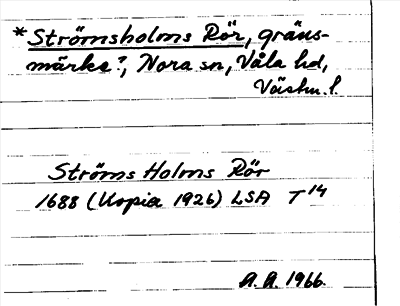 *Strömsholms Rör, gräns-
märke?, Nora sn, Våla hd,
Västm. l.
Ströms Holms Rör
1688 (Kopia 1926) LSA T 14
A.A. 1966.